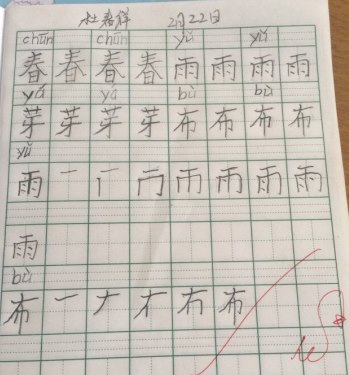 杜春祥 2月22日
chūn chūn yǔ yǔ
春 春 春 春 雨 雨 雨 雨
yá yá bù bù
芽 芽 芽 芽 布 布 布 布
yǔ
雨 一 丅 冂 雨 雨 雨 雨
雨
bù
布 一 ナ 才 右 布